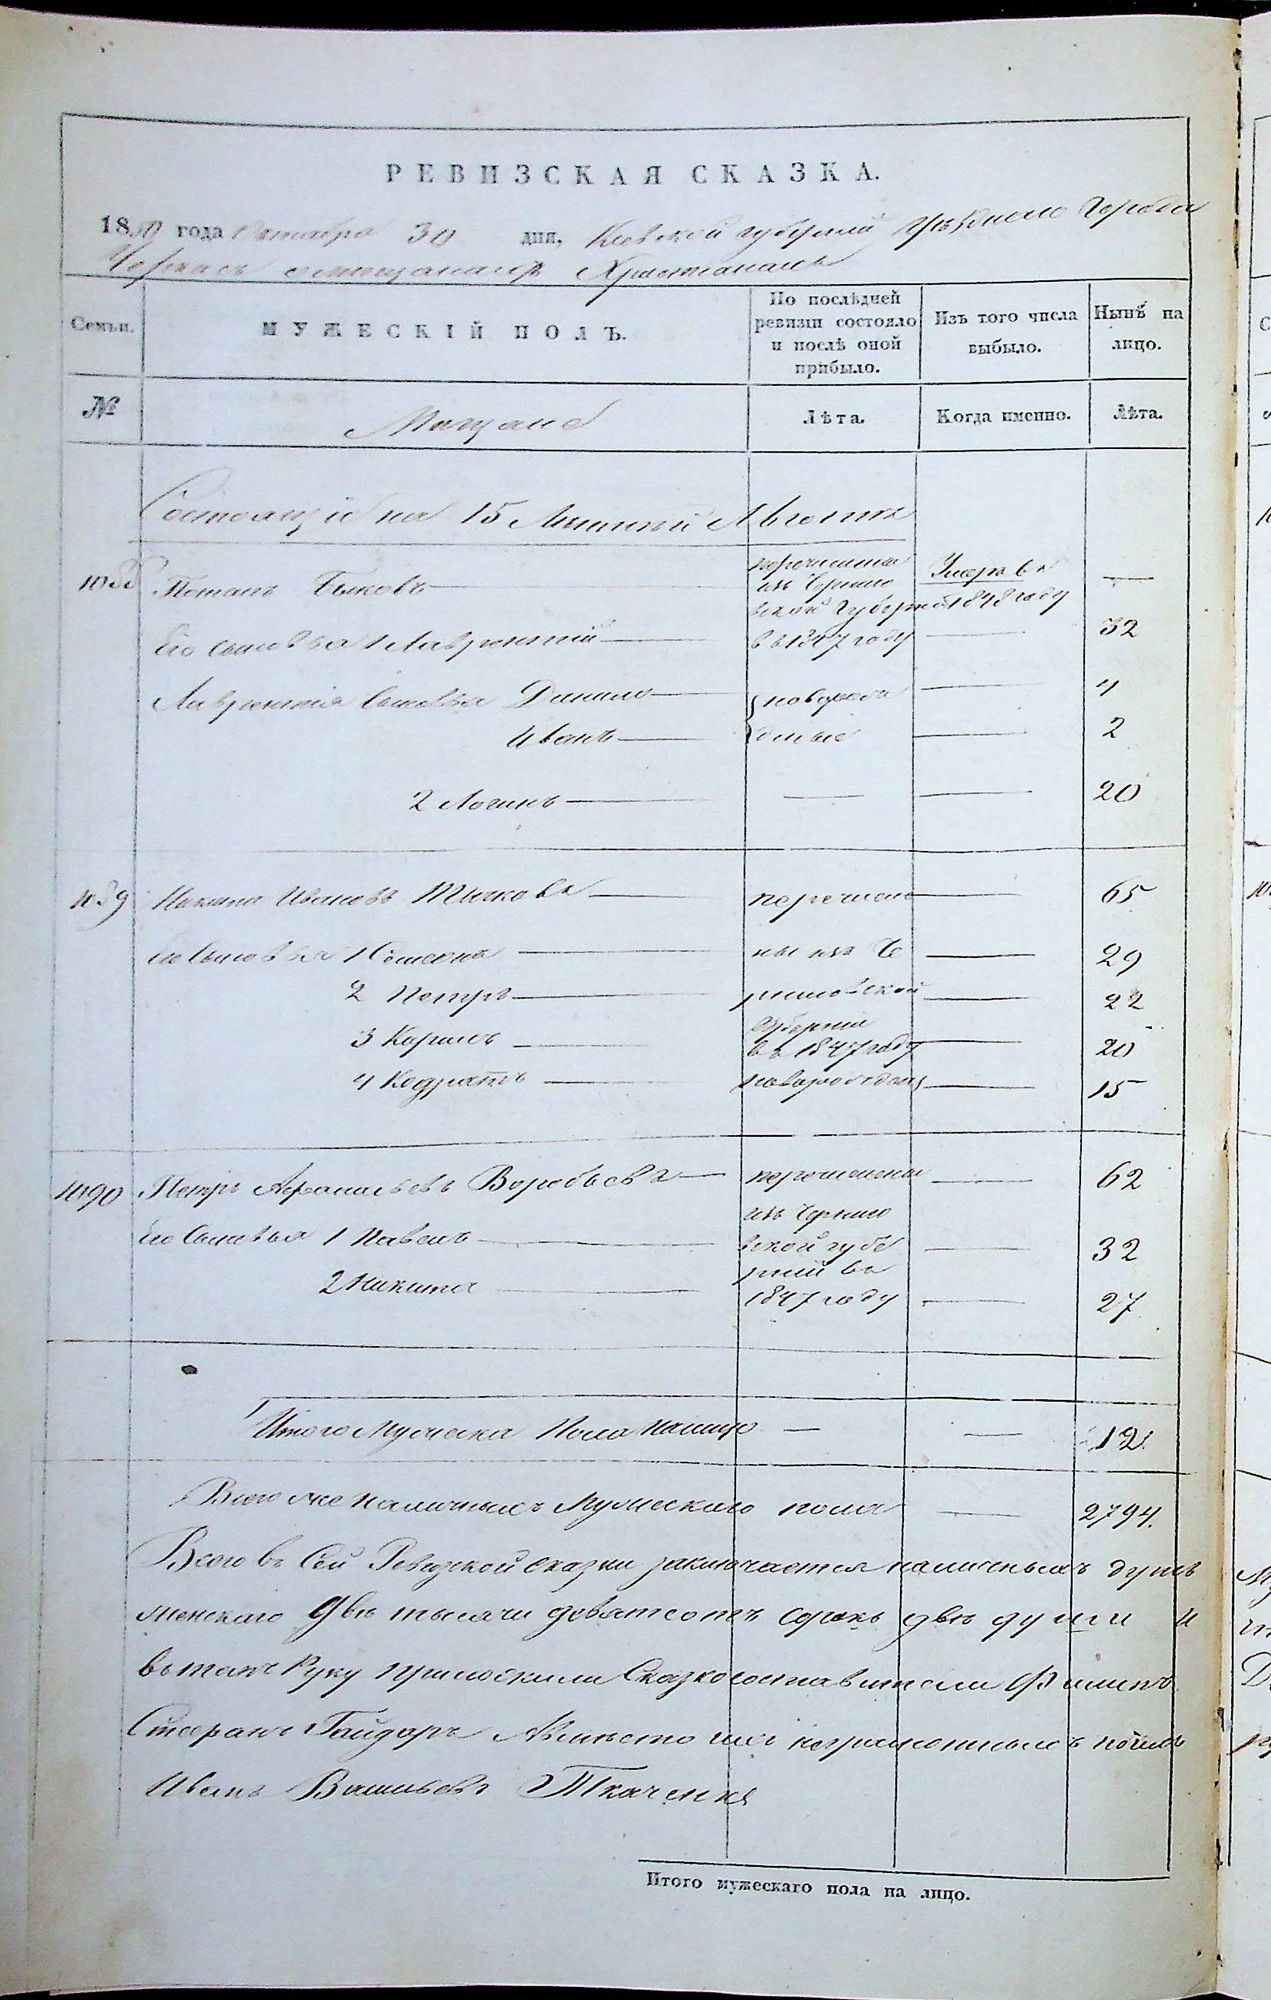 РЕВИЗСКАЯ СКАЗКА.
1850 года Октября 30 дня, Киевской губерній Уѣзднаго Города
Черкасъ о мещанахъ Христианахъ
Семьи.
МУЖЕСКІЙ ПОЛЪ.
По послѣдней ревизіи состояло и послѣ оной прибыло.
Изъ того числа выбыло.
Нынѣ на лицо.
№
Мещане
Лѣта.
Когда именно.
Лѣта.
Состоящіе на 15 Льготѣ
1088 Потапъ Быковъ перечислены изъ Черниговской Губерніи въ 1847 году Умеръ въ 1848 году —
Его сыновья 1 Лаврентій — 32
Лаврентія Сыновья Данило новорожденные 4
Иванъ — 2
2 Логинъ — 20
1089 Никита Ивановъ Тычковъ перечисле 65
Его Сыновья 1 ны изъ Че 29
2 Петръ рниговской 22
3 Карпъ Губерніи въ 1847 году 20
4 Кодратъ новорожденъ 15
1090 Петръ Афанасьевъ Воробьевъ перечислены 62
изъ Черниго
Его Сыновья 1 Павелъ вской губе 32
рній въ
2 Никита 1847 году 27
Итого Мужеска Пола налицо — — 12
Всего же наличныхъ Мужескаго пола — 2794.
Всего въ Сей Ревизской сказки заключается наличныхъ душъ
женскаго Двѣ тысячи девятсотъ сорокъ двѣ души и
въ томъ Руку приложили Сказкосоставители Филипъ
Стефанъ Гайдаръ Авмѣсто ихъ неграмотныхъ
Иванъ Васильевъ Ткаченко
Итого мужескаго пола на лицо.